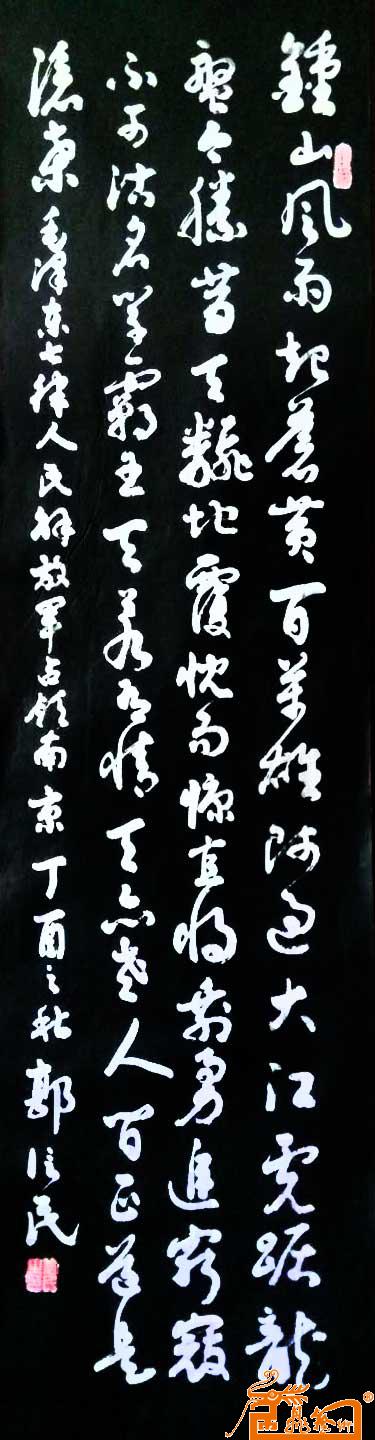 鍾山風雨起蒼黃百萬雄師過大江虎踞龍
盤今勝昔天翻地覆慨而慷宜將剩勇追窮寇
不可沽名學霸王天若有情天亦老人間正道是
滄桑 毛澤東七律人民解放軍占領南京 丁酉之秋 郭信民